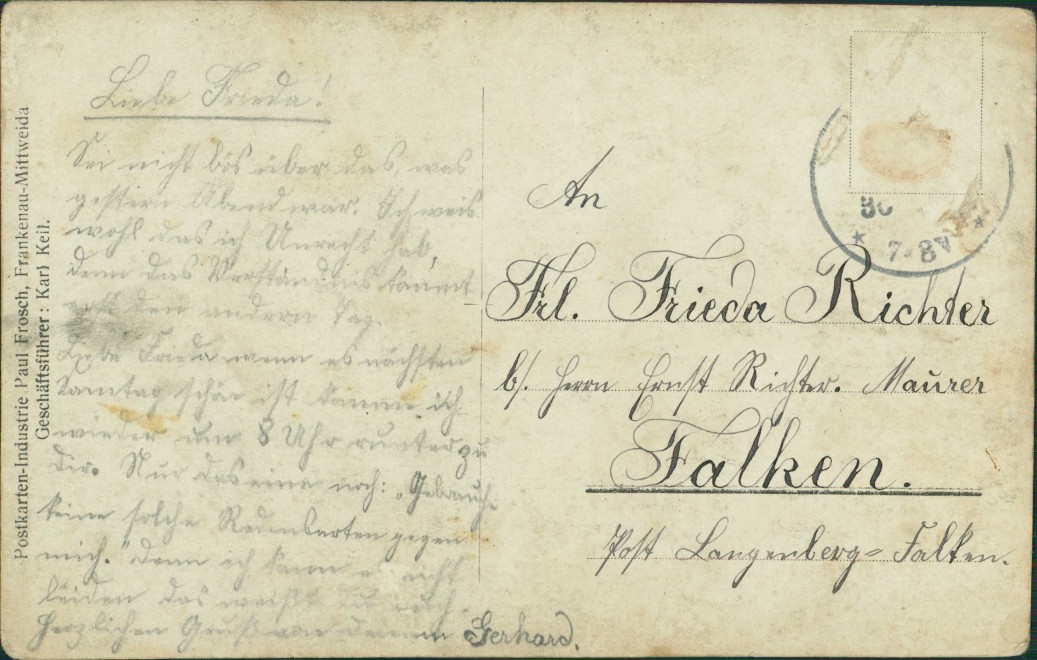 Postkarten-Industrie Paul Frosch, Frankenau-Mittweida
Geschäftsführer: Karl Keil.
Liebe Frieda!
Sei nicht bös über das, was
gestern Abend war. Ich weis
wohl das ich Unrecht hab,
denn das Verständnis kommt
erst den andern Tag.
Liebe Frieda wenn es nächsten
Sonntag schön ist komm ich
wieder um 8 Uhr runter zu
Dir. Nur das eine noch: „Gebrauche
keine solche Redensarten gegen
mich." Denn ich kann es nicht
leiden das weißt du auch.
Herzlichen Gruß von deinem Gerhard.
An
Frl. Frieda Richter
b/. Herrn Ernst Richter. Maurer
Falken.
Post Langenberg=Falken.
7-8V